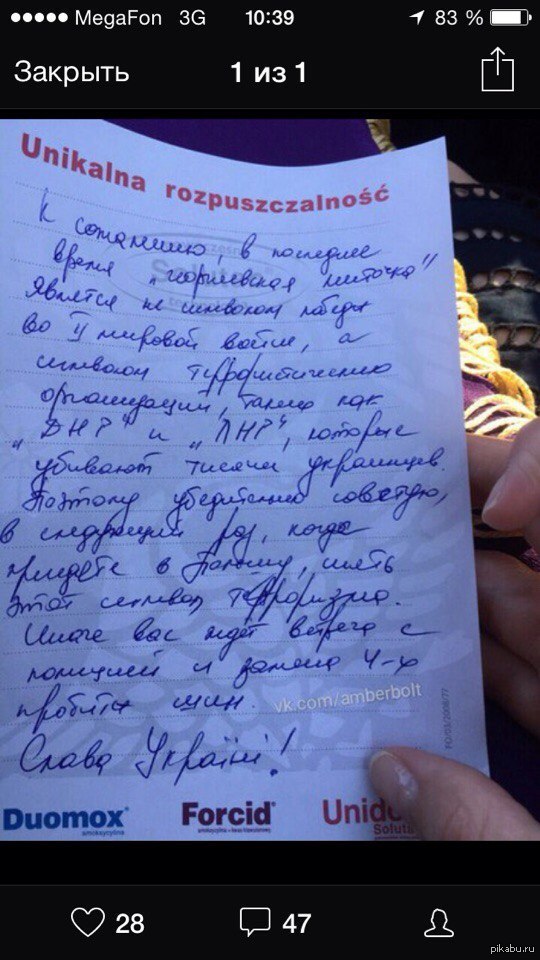 MegaFon 3G 10:39 83 %
Закрыть 1 из 1
Unikalna rozpuszczalność
К сожалению, в последнее
время „георгиевская ленточка"
Является не символом победы
во II мировой войне, а
символом террористических
организаций, таких как
„ДНР" и „ЛНР", которые
убивают тысячи украинцев.
Поэтому убедительно советую,
в следующий раз, когда
приедете в Польшу, снять
этот символ терроризма.
Иначе вас ждет встреча с
полицией и замена 4-х
пробитых шин.
vk.com/amberbolt
Слава Україні!
Duomox® Forcid® Unido
amoksycylina Solut
28 47
pikabu.ru